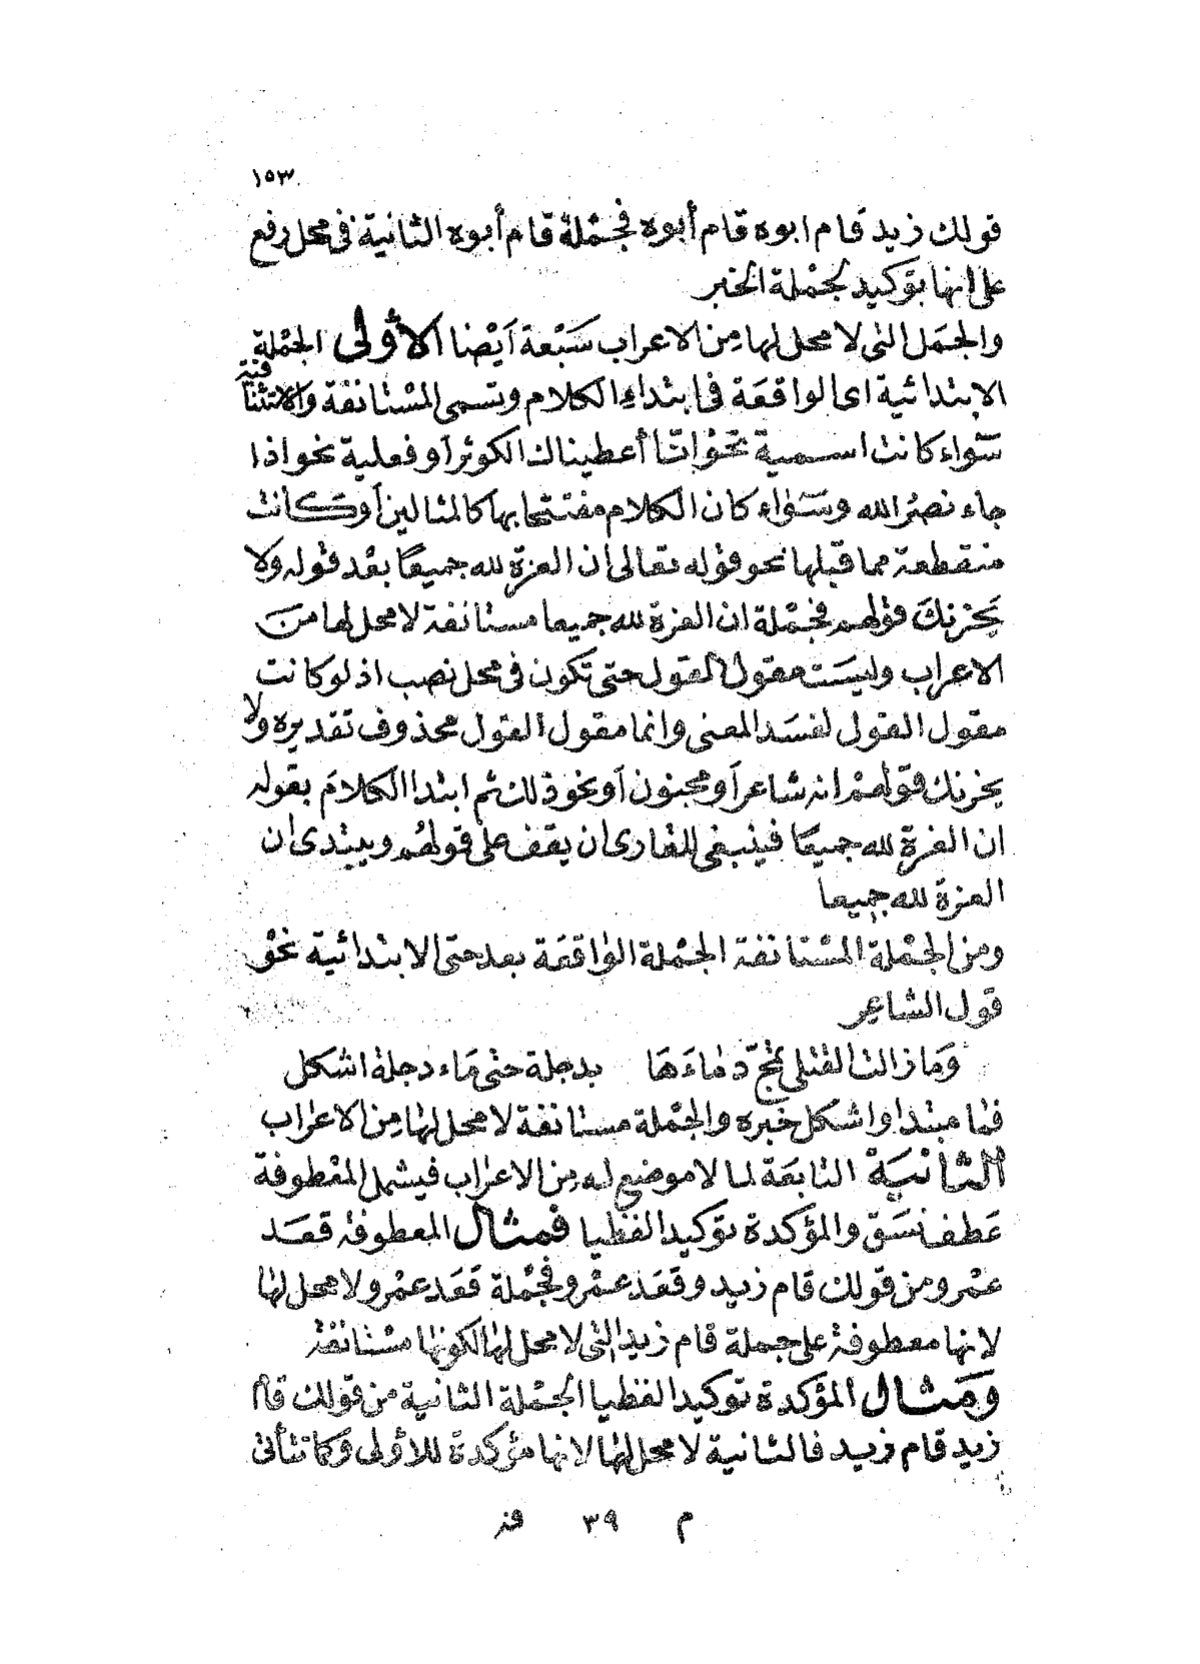 ١٥٣
قولك زيد قام ابوه قام أبوه فجمْلة قام أبوه الثانية فى محل رفع
على انها توكيد لجمْلة الخبر
والجمَل التى لا محل لها مِن الاعراب سَبْعة اَيْضا الأولى الجمْلة
الابتدائية اى الواقعَة فى ابتداءِ الكلام وتسمى المسْتانفة والاستئنافية
سَواء كانت اسمية نحْو اِنّا أعطيناك الكوثر اَو فعلية نحو اذا
جاء نصْرُ الله وسَواء كان الكلام مفتتحا بها كالمثالين اَو كانت
منقطعة مما قبلها نحو قوله تعالى ان العزة لله جميعًا بعْد قوله ولا
يَحْزنكَ قولهم فجمْلة ان العزة لله جميعا مستانفة لا محل لها من
الاعراب وليسَت مقول القول حتى تكون فى محل نصب اذ لو كانت
مقول القول لفسَد المعنى وانما مقول القول محذوف تقديره ولا
يحزنك قولهمْ انه شاعر اَو مجنون اَو نحو ذلك ثم ابتدا الكلامَ بقوله
ان العزة لله جميعًا فينبغى للقارى ان يقف على قولهُم ويبتدى ان
العزة لله جميعا
ومن الجمْلة المسْتانفة الجمْلة الواقعَة بعد حتى الابتدائية نحْو
قول الشاعِر
وَما زالت القتلى تمُجّ دماءَهَا بدجلة حتى مَاء دجلة اشكل
فما مبتدا واشكل خبره والجمْلة مستانفة لا محل لها مِن الاعراب
الثانيَة التابعَة لما لا موضع له مِن الاعراب فيشمل المعْطوفة
عَطف نسَق والمؤكدة توكيدا لفظيا فمثال المعطوفة قعَد
عمْرو من قولك قام زيد وقعَد عمْرو فجمْلة قعَد عمْرو لا محل لها
لانها معطوفة على جملة قام زيد التى لا محل لها لكونها مسْتانفة
وَمَثال المؤكدة توكيدا لفظيا الجمْلة الثانية من قولك قام
زيد قام زيد فالثانية لا محل لها لانها مؤكدة للأولى وَكما تتأتى
م ٣٩ فز